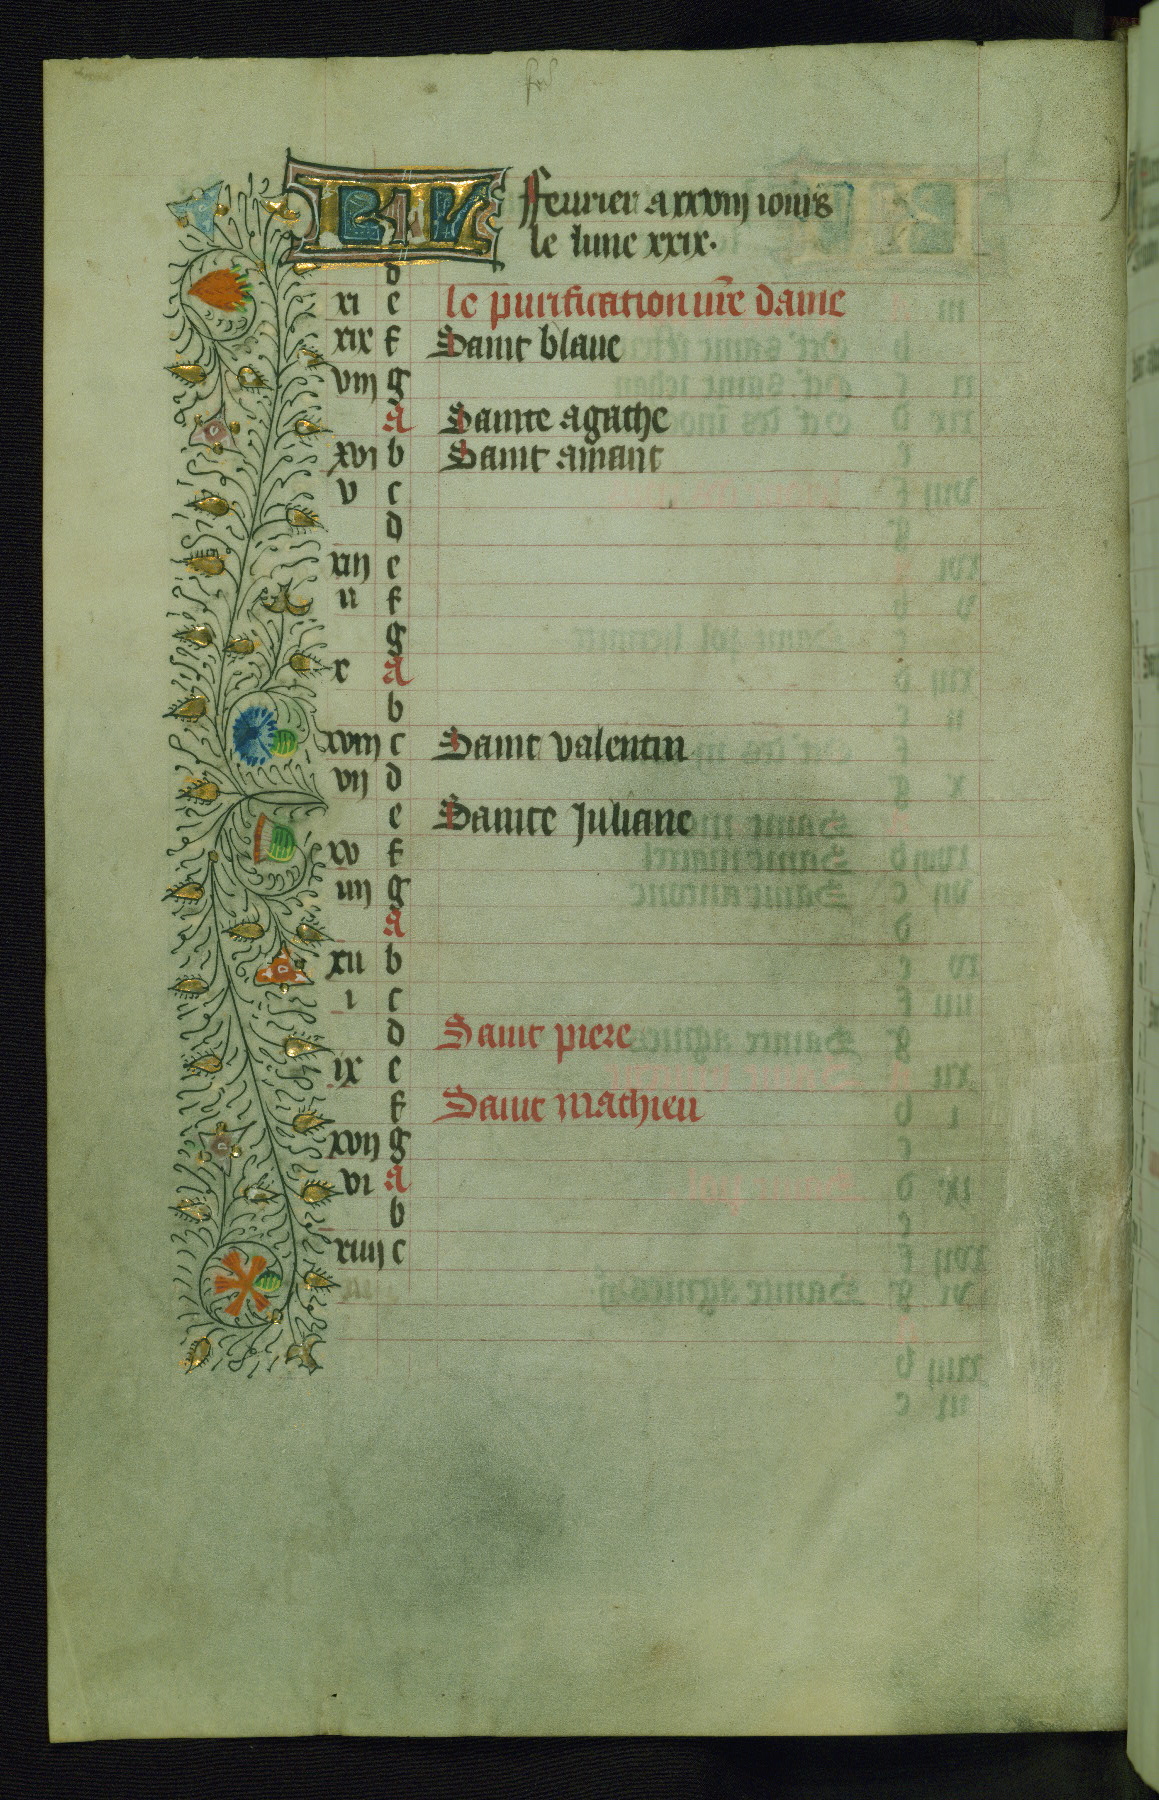 KL ffeurier a xxviij iours
le lune xxix.
d
xi e le purification nre dame
xix f Saint blaue
viij g
a Sainte agathe
xvi b Saint amant
v c
d
xiij e
ii f
g
x a
b
xviij c Saint valentin
vij d
e Sainte Juliane
xv f
iiij g
a
xii b
i c
d Saint piere
ix e
f Saint mathieu
xvij g
vi a
b
xiiij c